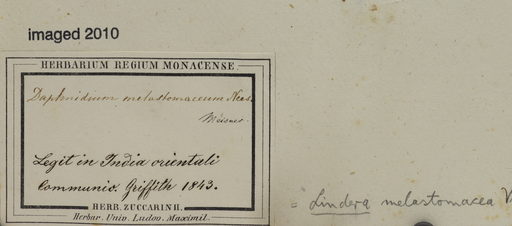 imaged 2010
HERBARIUM REGIUM MONACENSE.
Daphnidium melastomaceum Nees.
Meisner.
Legit in India orientali
Communic. Griffith 1843.
HERB. ZUCCARINII.
Herbar. Univ. Ludov. Maximil.
= Lindera melastomacea